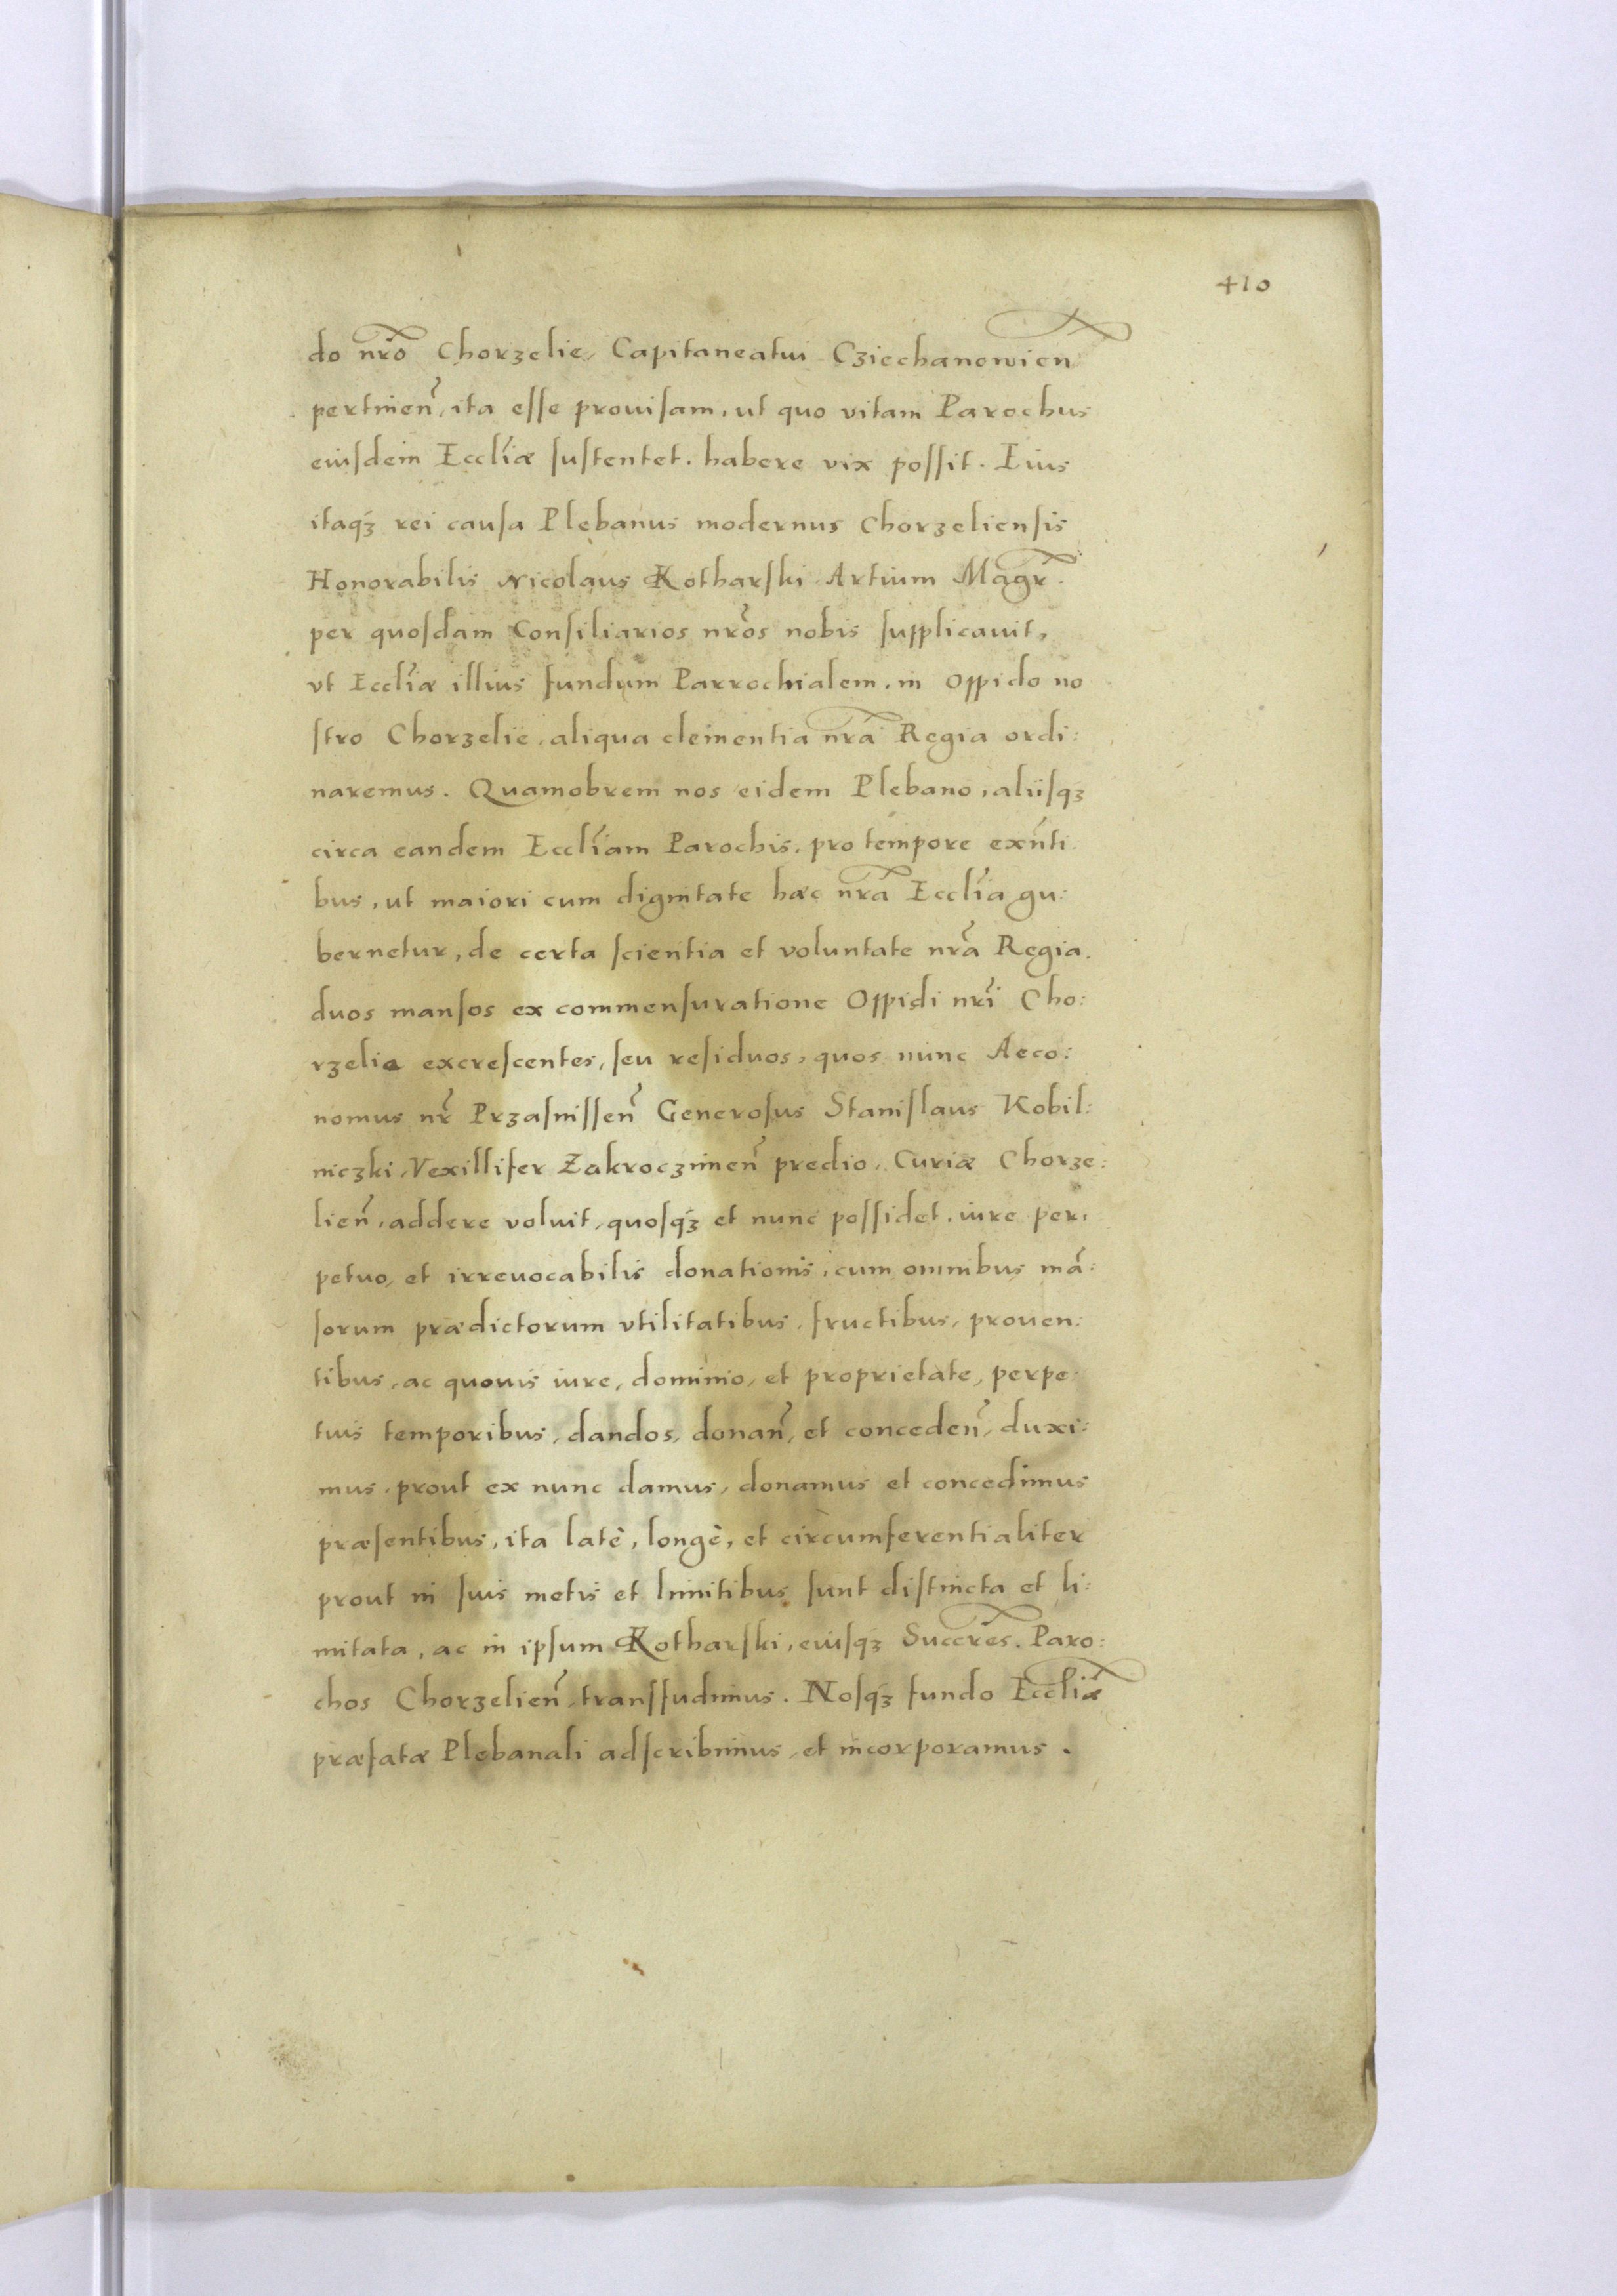 410
do nr̃o Chorzelie, Capitaneatui Cziechanowien̄
pertinen̄, ita esse prouisam, ut quo vitam Parochus
eiusdem Eccl̃iæ sustentet, habere vix possit. Eius
itaqꝫ rei causa Plebanus modernus Chorzeliensis
Honorabilis Nicolaus Kotharski Artium Magr̃.
per quosdam Consiliarios nr̃os nobis supplicauit,
vt Eccl̃iæ illius fundum Parrochialem, in Oppido no
stro Chorzelie, aliqua clementia nr̃a Regia ordi:
naremus. Quamobrem nos eidem Plebano, aliisqꝫ
circa eandem Eccl̃iam Parochis, pro tempore exñti
bus, ut maiori cum dignitate hæc nr̃a Eccl̃ia gu:
bernetur, de certa scientia et voluntate nr̃a Regia.
duos mansos ex commensuratione Oppidi nr̃i Cho:
rzelia excrescentes, seu residuos, quos nunc Aeco:
nomus nr̃ Przasnissen̄ Generosus Stanislaus Kobil:
niczki, Vexillifer Zakroczimen̄ predio, Curiæ Chorze:
lien̄, addere voluit, quosqꝫ et nunc possidet, iure per,
petuo, et irreuocabilis donationis, cum omnibus mã:
sorum prædictorum vtilitatibus, fructibus, prouen:
tibus, ac quouis iure, dominio, et proprietate, perpe:
tuis temporibus, dandos, donan̄, et conceden̄, duxi:
mus, prout ex nunc damus, donamus et concedimus
præsentibus, ita latè, longè, et circumferentialiter
prout in suis metis et limitibus sunt distincta et li:
mitata, ac in ipsum Kotharski, eiusqꝫ Succr̃es. Paro:
chos Chorzelien̄ transfudimus. Nosqꝫ fundo Eccl̃iæ
præfatæ Plebanali adscribimus, et incorporamus.